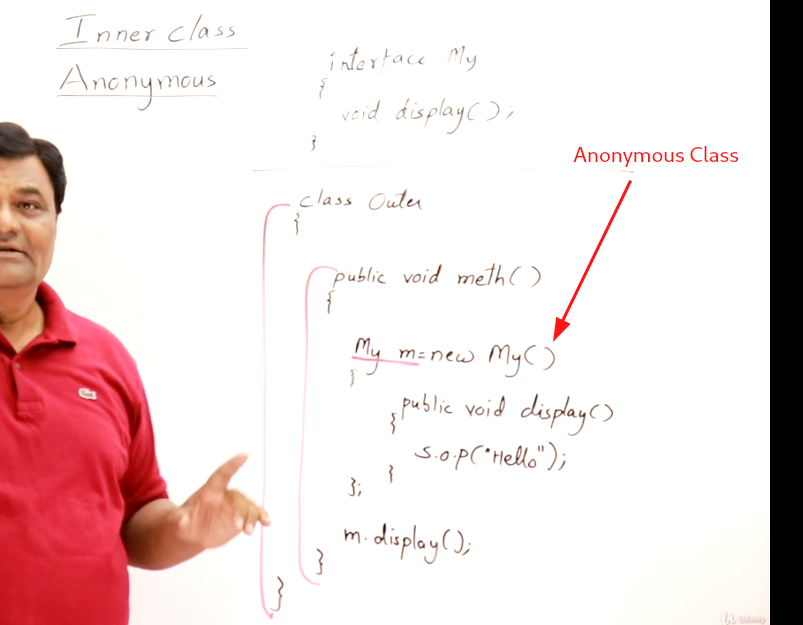 Inner class
Anonymous
interface My
{
void display();
}
Anonymous Class
class Outer
{
public void meth()
{
My m=new My()
{
public void display()
{
S.o.p("Hello");
}
};
m.display();
}
}
Udemy